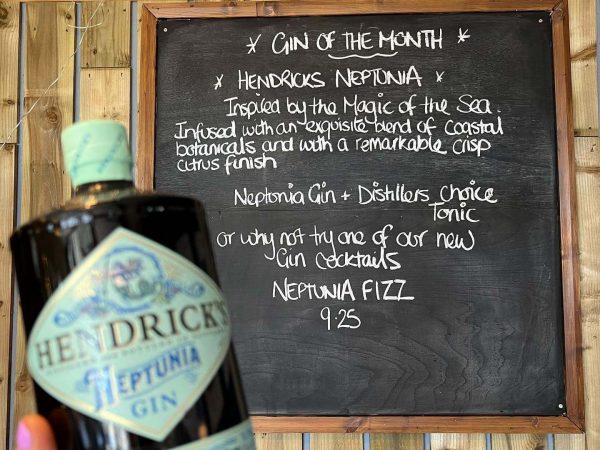 * GIN OF THE MONTH *
* HENDRICKS NEPTONIA *
Inspired by the Magic of the Sea.
Infused with an exquisite blend of coastal
botanicals and with a remarkable crisp
citrus finish
Neptonia Gin + Distillers Choice
Tonic
or why not try one of our new
Gin Cocktails
NEPTUNIA FIZZ
9.25
HENDRICK'S
NEPTUNIA
GIN